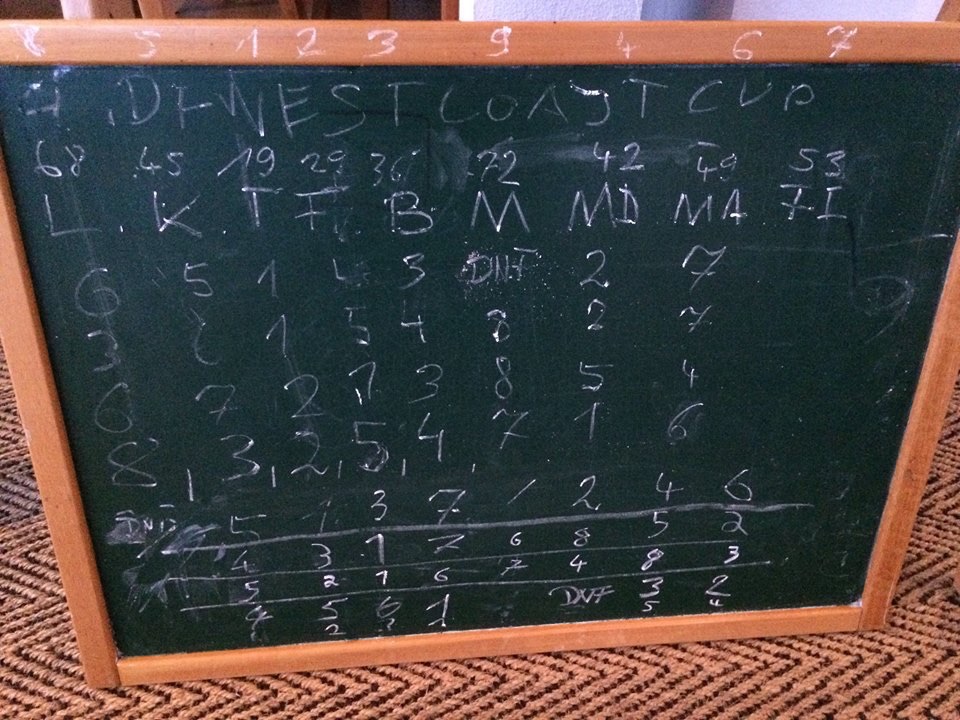 8 5 1 2 3 9 4 6 7
WEST COAST CUP
68 45 19 29 36 72 42 49 53
L K T F B M MD MA FI
6 5 1 4 3 DNF 2 7
3 1 5 4 8 2 7
6 7 2 1 3 8 5 4
8 3 2 5 4 7 1 6
5 1 3 7 / 2 4 6
4 3 1 7 6 8 5 2
5 2 1 6 7 4 8 3
4 5 6 1 DNF 3 2
2 5 4